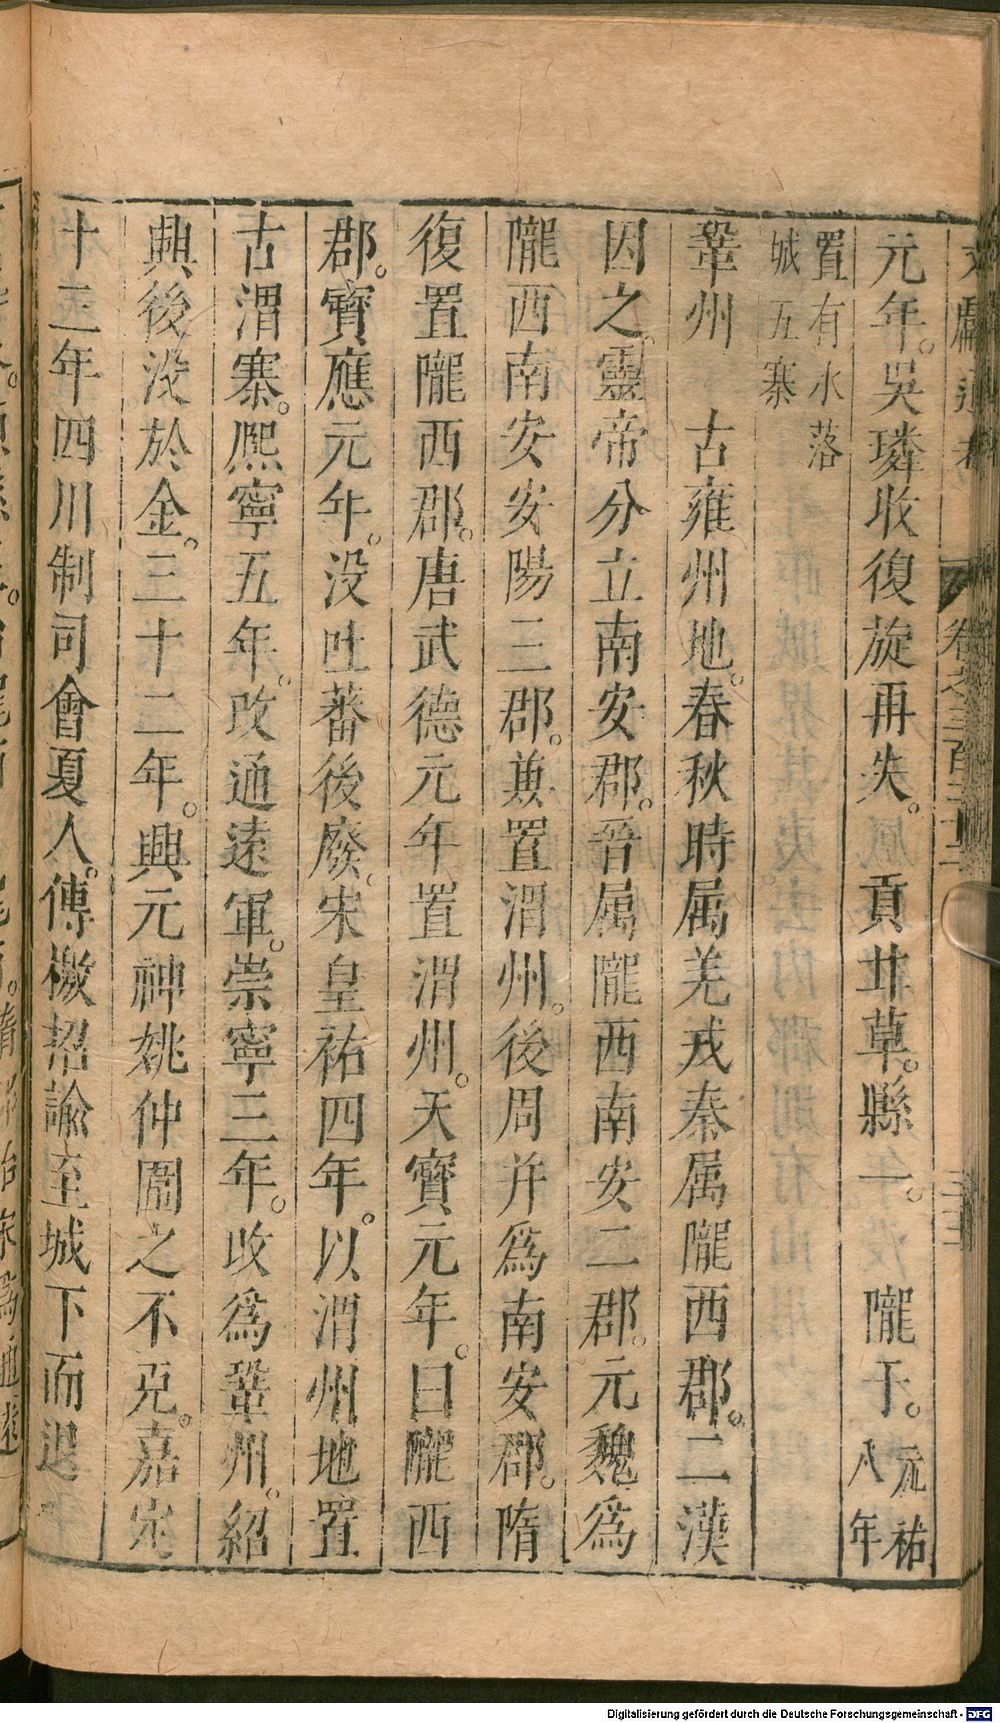 文獻通考 卷之三百二十二 二十三
元年。吳璘收復旋再失。貢甘草。縣一。隴干。元祐八年
置有水落
城五寨
鞏州 古雍州地。春秋時属羌戎秦属隴西郡。二漢
因之。靈帝分立南安郡。晉属隴西南安二郡。元魏爲
隴西南安安陽三郡。兼置渭州。後周并爲南安郡。隋
復置隴西郡。唐武德元年置渭州。天寶元年。曰隴西
郡。寶應元年。没吐蕃後廢。宋皇祐四年。以渭州地置
古渭寨。熙寧五年。改通遠軍。崇寧三年。改爲鞏州。紹
興後没於金。三十二年。興元神姚仲圖之不克。嘉定
十三年四川制司會夏人。傳檄招諭至城下而退